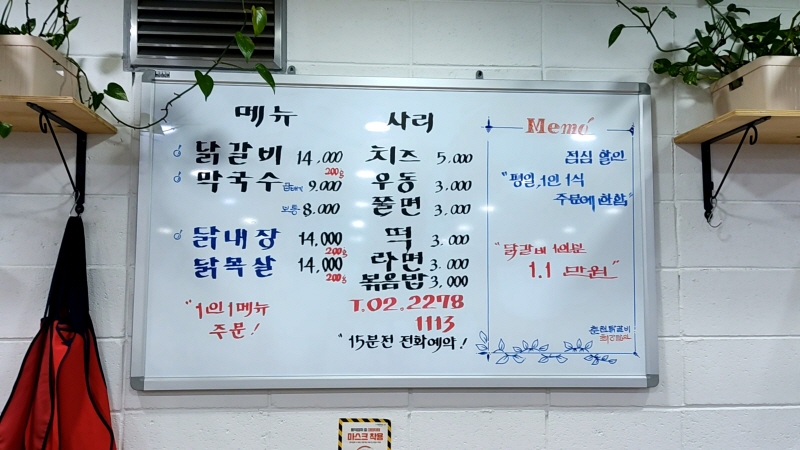 메뉴
닭갈비 14,000
200g
막국수 곱빼기 9,000
보통 8,000
닭내장 14,000
200g
닭목살 14,000
200g
"1인 1메뉴
주문!
사리
치즈 5,000
우동 3,000
쫄면 3,000
떡 3,000
라면 3,000
볶음밥 3,000
T.02.2278
1113
"15분전 전화예약!
Memo
점심 할인
"평일, 1인 1식
주문에 한함"
"닭갈비 1인분
1.1 만원"
춘천닭갈비
마스크 착용